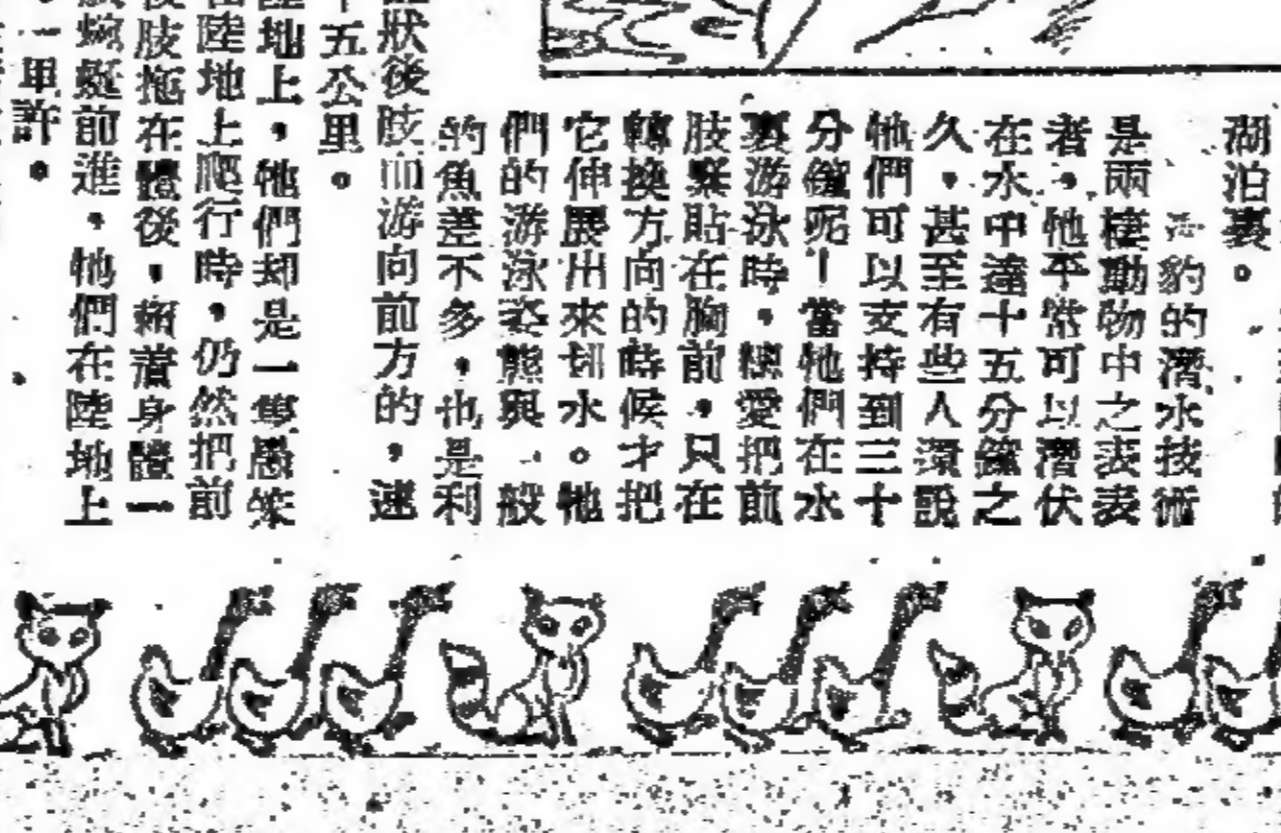 湖泊裏。
海豹的潛水技術
是兩棲動物中之表表
者，牠平常可以潛伏
在水中達十五分鐘之
久，甚至有些人還說
牠們可以支持到三十
分鐘呢！當牠們在水
裏游泳時，總愛把前
肢緊貼在胸前，只在
轉換方向的時候才把
它伸展出來切水。牠
們的游泳姿態與一般
的魚差不多，也是利
狀後肢而游向前方的，速
十五公里。
陸地上，牠們却是一隻愚笨
在陸地上爬行時，仍然把前
後肢拖在體後，藉着身體一
蜿蜒前進，牠們在陸地上
一里許。